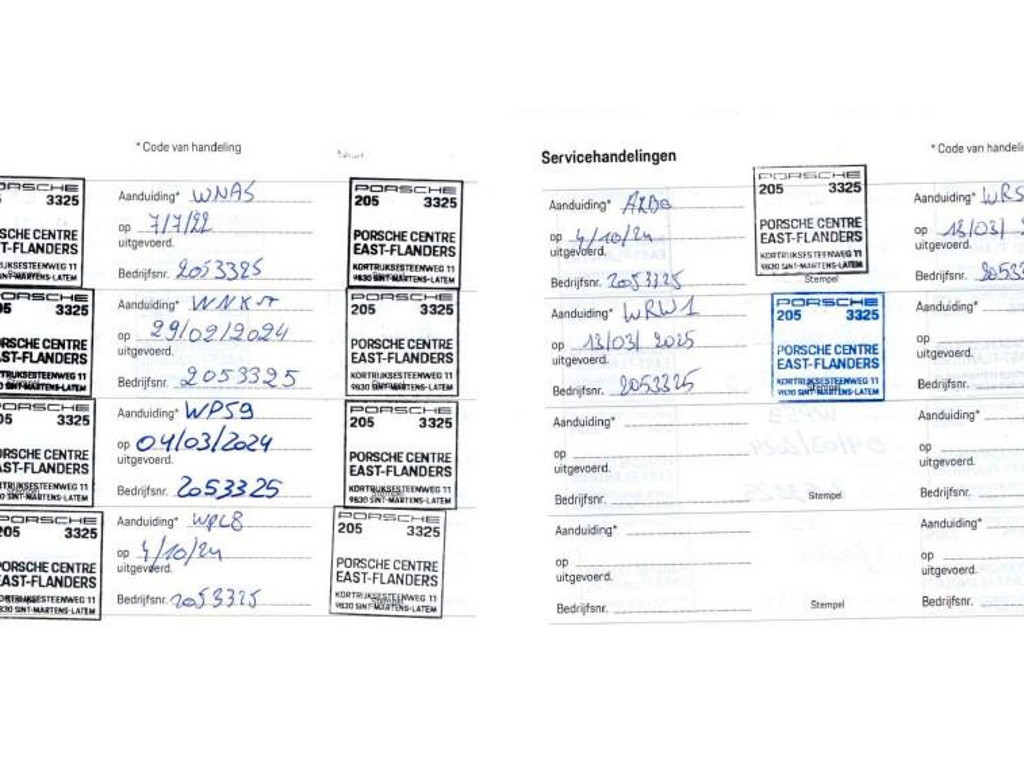 * Code van handeling
PORSCHE
3325
PORSCHE CENTRE
T-FLANDERS
Aanduiding* WNA5
op 7/7/22
uitgevoerd.
Bedrijfsnr. 2053325
PORSCHE
205 3325
PORSCHE CENTRE
EAST-FLANDERS
KORTRIJKSESTEENWEG 11
9830 SINT-MARTENS-LATEM
PORSCHE
05 3325
PORSCHE CENTRE
AST-FLANDERS
KORTRIJKSESTEENWEG 11
9830 SINT-MARTENS-LATEM
Aanduiding*
op 29/02/2024
uitgevoerd.
Bedrijfsnr. 2053325
PORSCHE
205 3325
PORSCHE CENTRE
EAST-FLANDERS
KORTRIJKSESTEENWEG 11
9830 SINT-MARTENS-LATEM
PORSCHE
05 3325
PORSCHE CENTRE
AST-FLANDERS
KORTRIJKSESTEENWEG 11
9830 SINT-MARTENS-LATEM
Aanduiding* WP59
op 04/03/2024
uitgevoerd.
Bedrijfsnr. 2053325
PORSCHE
205 3325
PORSCHE CENTRE
EAST-FLANDERS
KORTRIJKSESTEENWEG 11
9830 SINT-MARTENS-LATEM
PORSCHE
05 3325
PORSCHE CENTRE
AST-FLANDERS
KORTRIJKSESTEENWEG 11
9830 SINT-MARTENS-LATEM
Aanduiding* WPL8
op 4/10/24
uitgevoerd.
Bedrijfsnr. 2053325
PORSCHE
205 3325
PORSCHE CENTRE
EAST-FLANDERS
KORTRIJKSESTEENWEG 11
9830 SINT-MARTENS-LATEM
Servicehandelingen
* Code van handelin
Aanduiding*
op 4/10/24
uitgevoerd.
Bedrijfsnr. 2053325
PORSCHE
205 3325
PORSCHE CENTRE
EAST-FLANDERS
KORTRIJKSESTEENWEG 11
9830 SINT-MARTENS-LATEM
Stempel
Aanduiding* WRS
op 13/03/
uitgevoerd.
Bedrijfsnr. 2053
Aanduiding* WRW1
op 13/03/2025
uitgevoerd.
Bedrijfsnr. 2053325
PORSCHE
205 3325
PORSCHE CENTRE
EAST-FLANDERS
KORTRIJKSESTEENWEG 11
9830 SINT-MARTENS-LATEM
Stempel
Aanduiding*
op
uitgevoerd.
Bedrijfsnr.
Aanduiding*
op
uitgevoerd.
Bedrijfsnr.
Stempel
Aanduiding*
op
uitgevoerd.
Bedrijfsnr.
Aanduiding*
op
uitgevoerd.
Bedrijfsnr.
Stempel
Aanduiding*
op
uitgevoerd.
Bedrijfsnr.